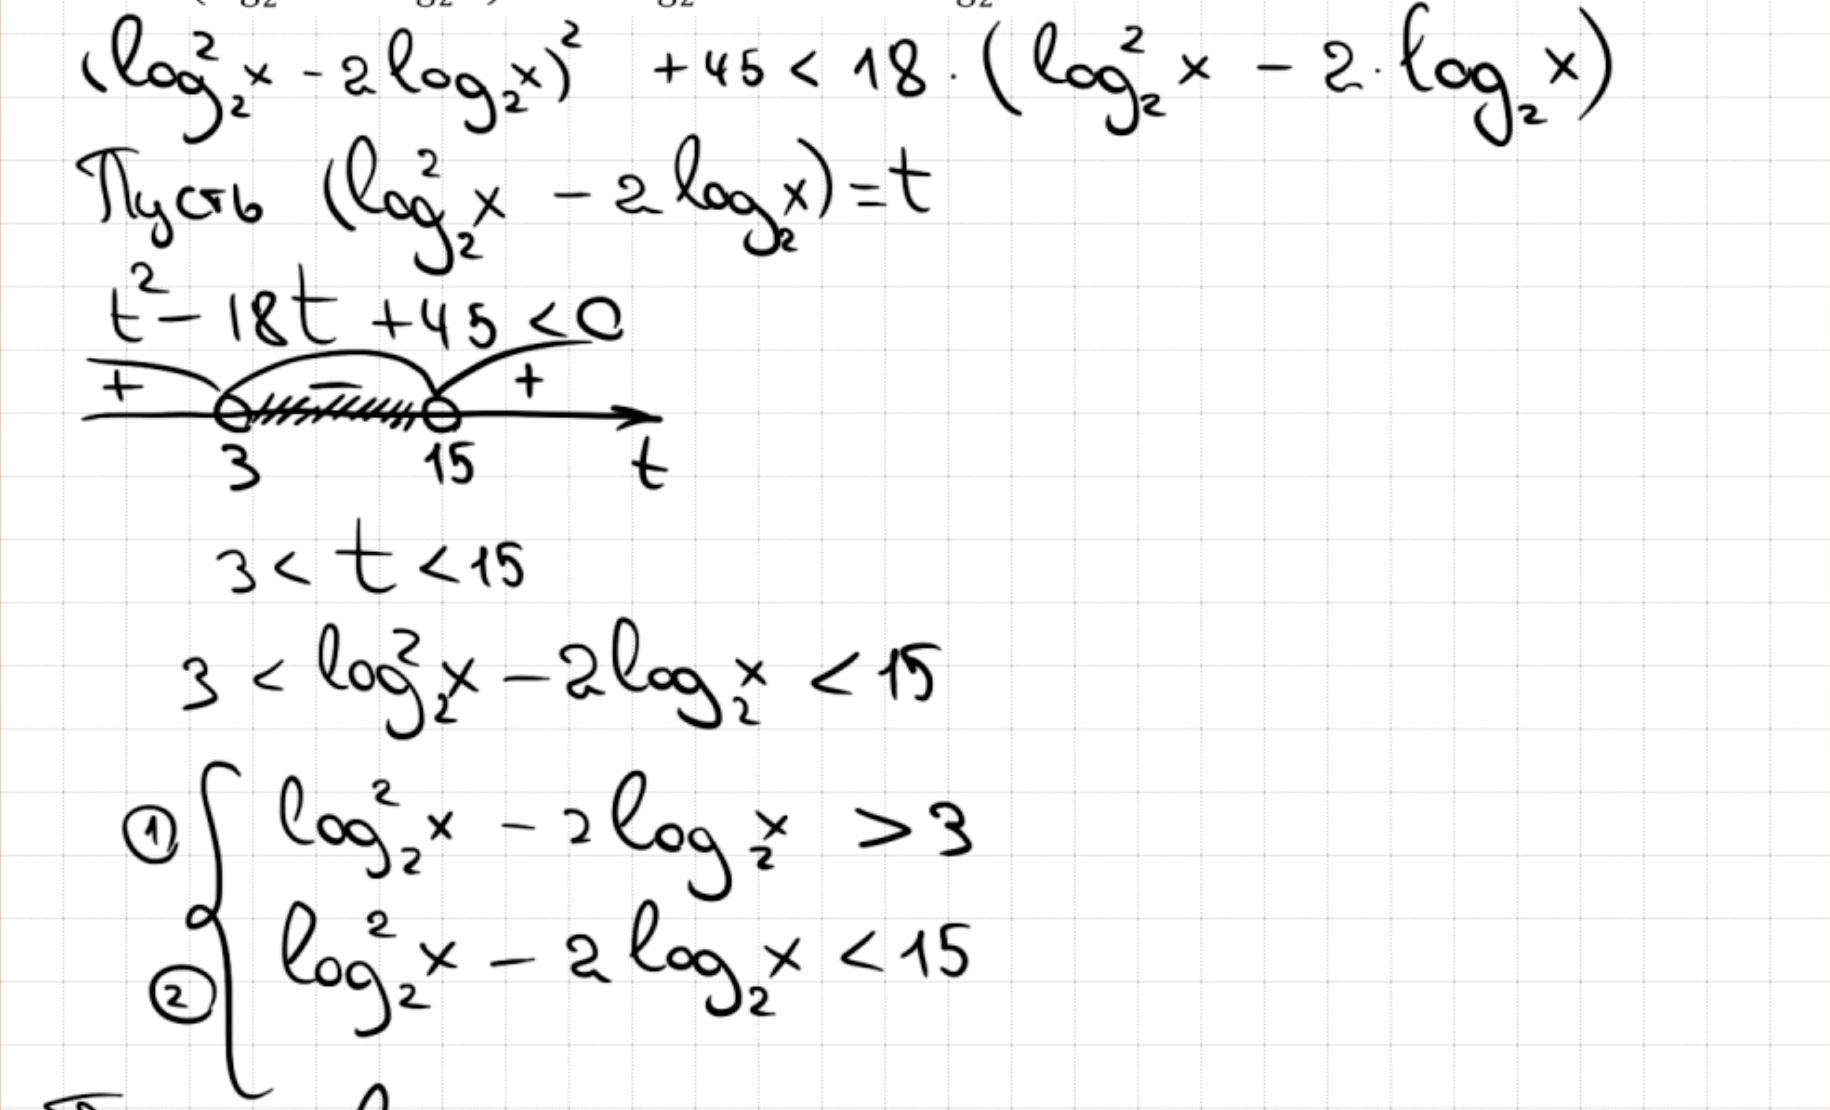 (log₂²x - 2log₂x)² + 45 < 18·(log₂²x - 2·log₂x)
Пусть (log₂²x - 2log₂x) = t
t² - 18t + 45 < 0
+ - +
3 15 t
3 < t < 15
3 < log₂²x - 2log₂x < 15
① log₂²x - 2log₂x > 3
② log₂²x - 2log₂x < 15